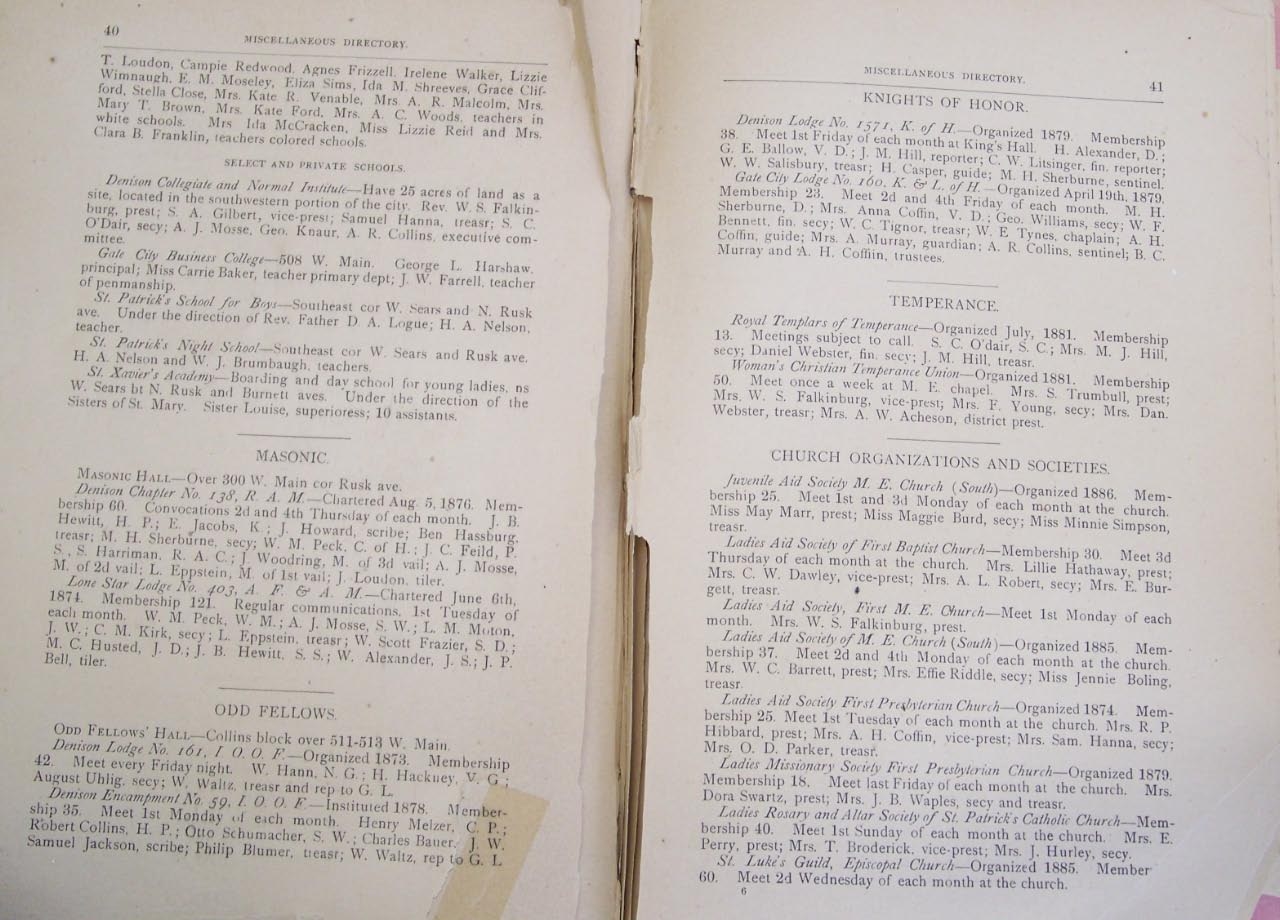 40
MISCELLANEOUS DIRECTORY.
T. Loudon, Campie Redwood, Agnes Frizzell, Irelene Walker, Lizzie
Wimnaugh, E. M. Moseley, Eliza Sims, Ida M. Shreeves, Grace Clif-
ford, Stella Close, Mrs. Kate R. Venable, Mrs. A. R. Malcolm, Mrs.
Mary T. Brown, Mrs. Kate Ford, Mrs. A. C. Woods, teachers in
white schools. Mrs Ida McCracken, Miss Lizzie Reid and Mrs.
Clara B. Franklin, teachers colored schools.
SELECT AND PRIVATE SCHOOLS.
Denison Collegiate and Normal Institute—Have 25 acres of land as a
site, located in the southwestern portion of the city. Rev. W. S. Falkin-
burg, prest; S. A. Gilbert, vice-prest; Samuel Hanna, treasr; S. C.
O'Dair, secy; A. J. Mosse, Geo. Knaur, A. R. Collins, executive com-
mittee.
Gate City Business College—508 W. Main. George L. Harshaw,
principal; Miss Carrie Baker, teacher primary dept; J. W. Farrell, teacher
of penmanship.
St. Patrick's School for Boys—Southeast cor W. Sears and N. Rusk
ave. Under the direction of Rev. Father D. A. Logue; H. A. Nelson,
teacher.
St. Patrick's Night School—Southeast cor W. Sears and Rusk ave.
H. A. Nelson and W. J. Brumbaugh, teachers.
St. Xavier's Academy—Boarding and day school for young ladies, ns
W. Sears bt N. Rusk and Burnett aves. Under the direction of the
Sisters of St. Mary. Sister Louise, superioress; 10 assistants.
MASONIC.
MASONIC HALL—Over 300 W. Main cor Rusk ave.
Denison Chapter No. 138, R. A. M.—Chartered Aug. 5, 1876. Mem-
bership 60. Convocations 2d and 4th Thursday of each month. J. B.
Hewitt, H. P.; E. Jacobs, K.; J. Howard, scribe; Ben Hassburg,
treasr; M. H. Sherburne, secy; W. M. Peck, C. of H.; J. C. Feild, P.
S., S. Harriman, R. A. C.; J. Woodring, M. of 3d vail; A. J. Mosse,
M. of 2d vail; L. Eppstein, M. of 1st vail; J. Loudon, tiler.
Lone Star Lodge No. 403, A. F. & A. M.—Chartered June 6th,
1874. Membership 121. Regular communications, 1st Tuesday of
each month. W. M. Peck, W. M.; A. J. Mosse, S. W.; L. M. Moton,
J. W.; C. M. Kirk, secy; L. Eppstein, treasr; W. Scott Frazier, S. D.;
M. C. Husted, J. D.; J. B. Hewitt, S. S.; W. Alexander, J. S.; J. P.
Bell, tiler.
ODD FELLOWS.
ODD FELLOWS' HALL—Collins block over 511-513 W. Main.
Denison Lodge No. 161, I. O. O. F.—Organized 1873. Membership
42. Meet every Friday night. W. Hann, N. G.; H. Hackney, V. G.;
August Uhlig, secy; W. Waltz, treasr and rep to G. L.
Denison Encampment No. 59, I. O. O. F.—Instituted 1878. Member-
ship 35. Meet 1st Monday of each month. Henry Melzer, C. P.;
Robert Collins, H. P.; Otto Schumacher, S. W.; Charles Bauer, J. W.
Samuel Jackson, scribe; Philip Blumer, treasr; W. Waltz, rep to G. L
MISCELLANEOUS DIRECTORY.
41
KNIGHTS OF HONOR.
Denison Lodge No. 1571, K. of H.—Organized 1879. Membership
38. Meet 1st Friday of each month at King's Hall. H. Alexander, D.;
G. E. Ballow, V. D.; J. M. Hill, reporter; C. W. Litsinger, fin. reporter;
W. W. Salisbury, treasr; H. Casper, guide; M. H. Sherburne, sentinel.
Gate City Lodge No. 160, K. & L. of H.—Organized April 19th, 1879.
Membership 23. Meet 2d and 4th Friday of each month. M. H.
Sherburne, D.; Mrs. Anna Coffin, V. D.; Geo. Williams, secy; W. F.
Bennett, fin. secy; W. C. Tignor, treasr; W. E Tynes, chaplain; A. H.
Coffin, guide; Mrs. A. Murray, guardian; A. R. Collins, sentinel; B. C.
Murray and A. H. Coffiin, trustees.
TEMPERANCE.
Royal Templars of Temperance—Organized July, 1881. Membership
13. Meetings subject to call. S. C. O'dair, S. C.; Mrs. M. J. Hill,
secy; Daniel Webster, fin. secy; J. M. Hill, treasr.
Woman's Christian Temperance Union—Organized 1881. Membership
50. Meet once a week at M. E. chapel. Mrs. S. Trumbull, prest;
Mrs. W. S. Falkinburg, vice-prest; Mrs. F. Young, secy; Mrs. Dan.
Webster, treasr; Mrs. A. W. Acheson, district prest.
CHURCH ORGANIZATIONS AND SOCIETIES.
Juvenile Aid Society M. E. Church (South)—Organized 1886. Mem-
bership 25. Meet 1st and 3d Monday of each month at the church.
Miss May Marr, prest; Miss Maggie Burd, secy; Miss Minnie Simpson,
treasr.
Ladies Aid Society of First Baptist Church—Membership 30. Meet 3d
Thursday of each month at the church. Mrs. Lillie Hathaway, prest;
Mrs. C. W. Dawley, vice-prest; Mrs. A. L. Robert, secy; Mrs. E. Bur-
gett, treasr.
Ladies Aid Society, First M. E. Church—Meet 1st Monday of each
month. Mrs. W. S. Falkinburg, prest.
Ladies Aid Society of M. E. Church (South)—Organized 1885. Mem-
bership 37. Meet 2d and 4th Monday of each month at the church.
Mrs. W. C. Barrett, prest; Mrs. Effie Riddle, secy; Miss Jennie Boling,
treasr.
Ladies Aid Society First Presbyterian Church—Organized 1874. Mem-
bership 25. Meet 1st Tuesday of each month at the church. Mrs. R. P.
Hibbard, prest; Mrs. A. H. Coffin, vice-prest; Mrs. Sam. Hanna, secy;
Mrs. O. D. Parker, treasr.
Ladies Missionary Society First Presbyterian Church—Organized 1879.
Membership 18. Meet last Friday of each month at the church. Mrs.
Dora Swartz, prest; Mrs. J. B. Waples, secy and treasr.
Ladies Rosary and Altar Society of St. Patrick's Catholic Church—Mem-
bership 40. Meet 1st Sunday of each month at the church. Mrs. E.
Perry, prest; Mrs. T. Broderick, vice-prest; Mrs. J. Hurley, secy.
St. Luke's Guild, Episcopal Church—Organized 1885. Member
60. Meet 2d Wednesday of each month at the church.
6